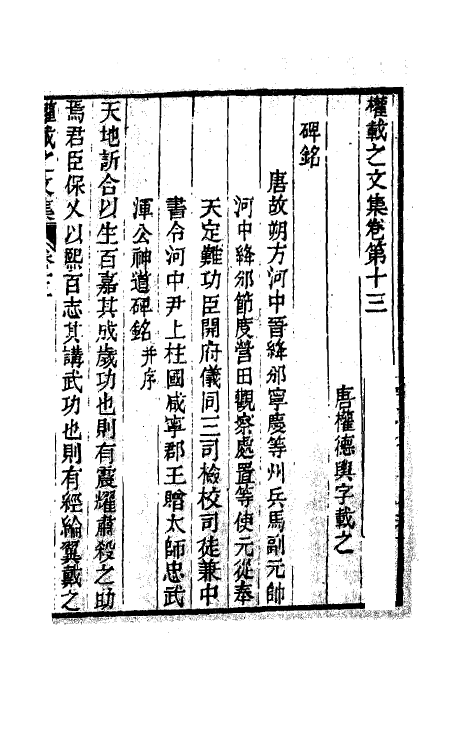 權載之文集卷第十三
唐權德輿字載之
碑銘
唐故朔方河中晉絳邠寧慶等州兵馬副元帥
河中絳邠節度營田觀察處置等使元從奉
天定難功臣開府儀同三司檢校司徒兼中
書令河中尹上柱國咸寧郡王贈太師忠武
渾公神道碑銘并序
天地訢合以生百嘉其成歲功也則有震耀肅殺之助
焉君臣保乂以熙百志其講武功也則有經綸翼戴之
權載之文集